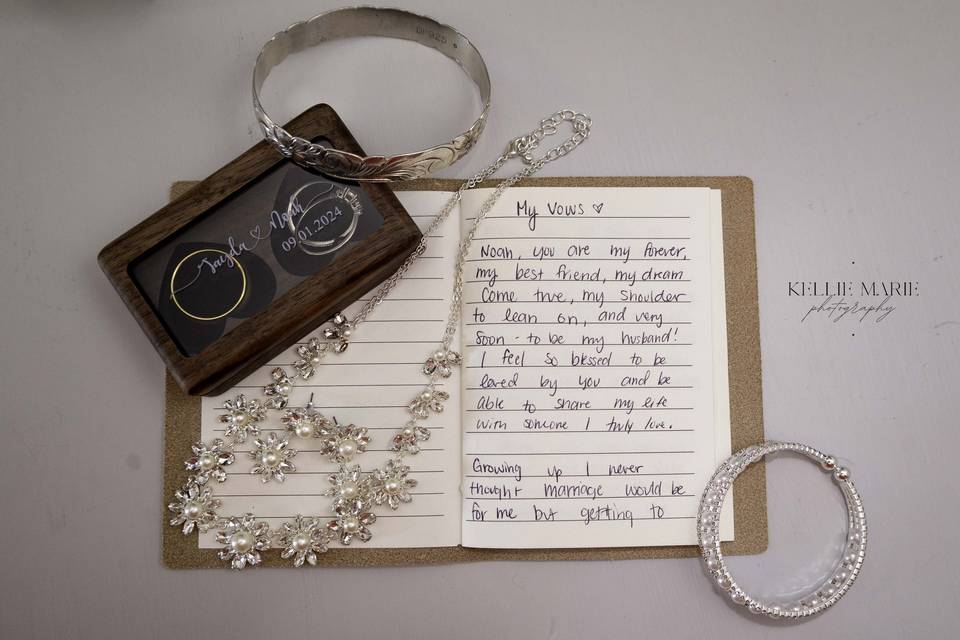 OP925
Jayda ♡ Noah
09.01.2024
My Vows ♡
Noah, you are my forever,
my best friend, my dream
Come true, my shoulder
to lean on, and very
soon - to be my husband!
I feel so blessed to be
loved by you and be
able to share my life
with someone I truly love.
Growing up I never
thought marriage would be
for me but getting to
KELLIE MARIE
photography